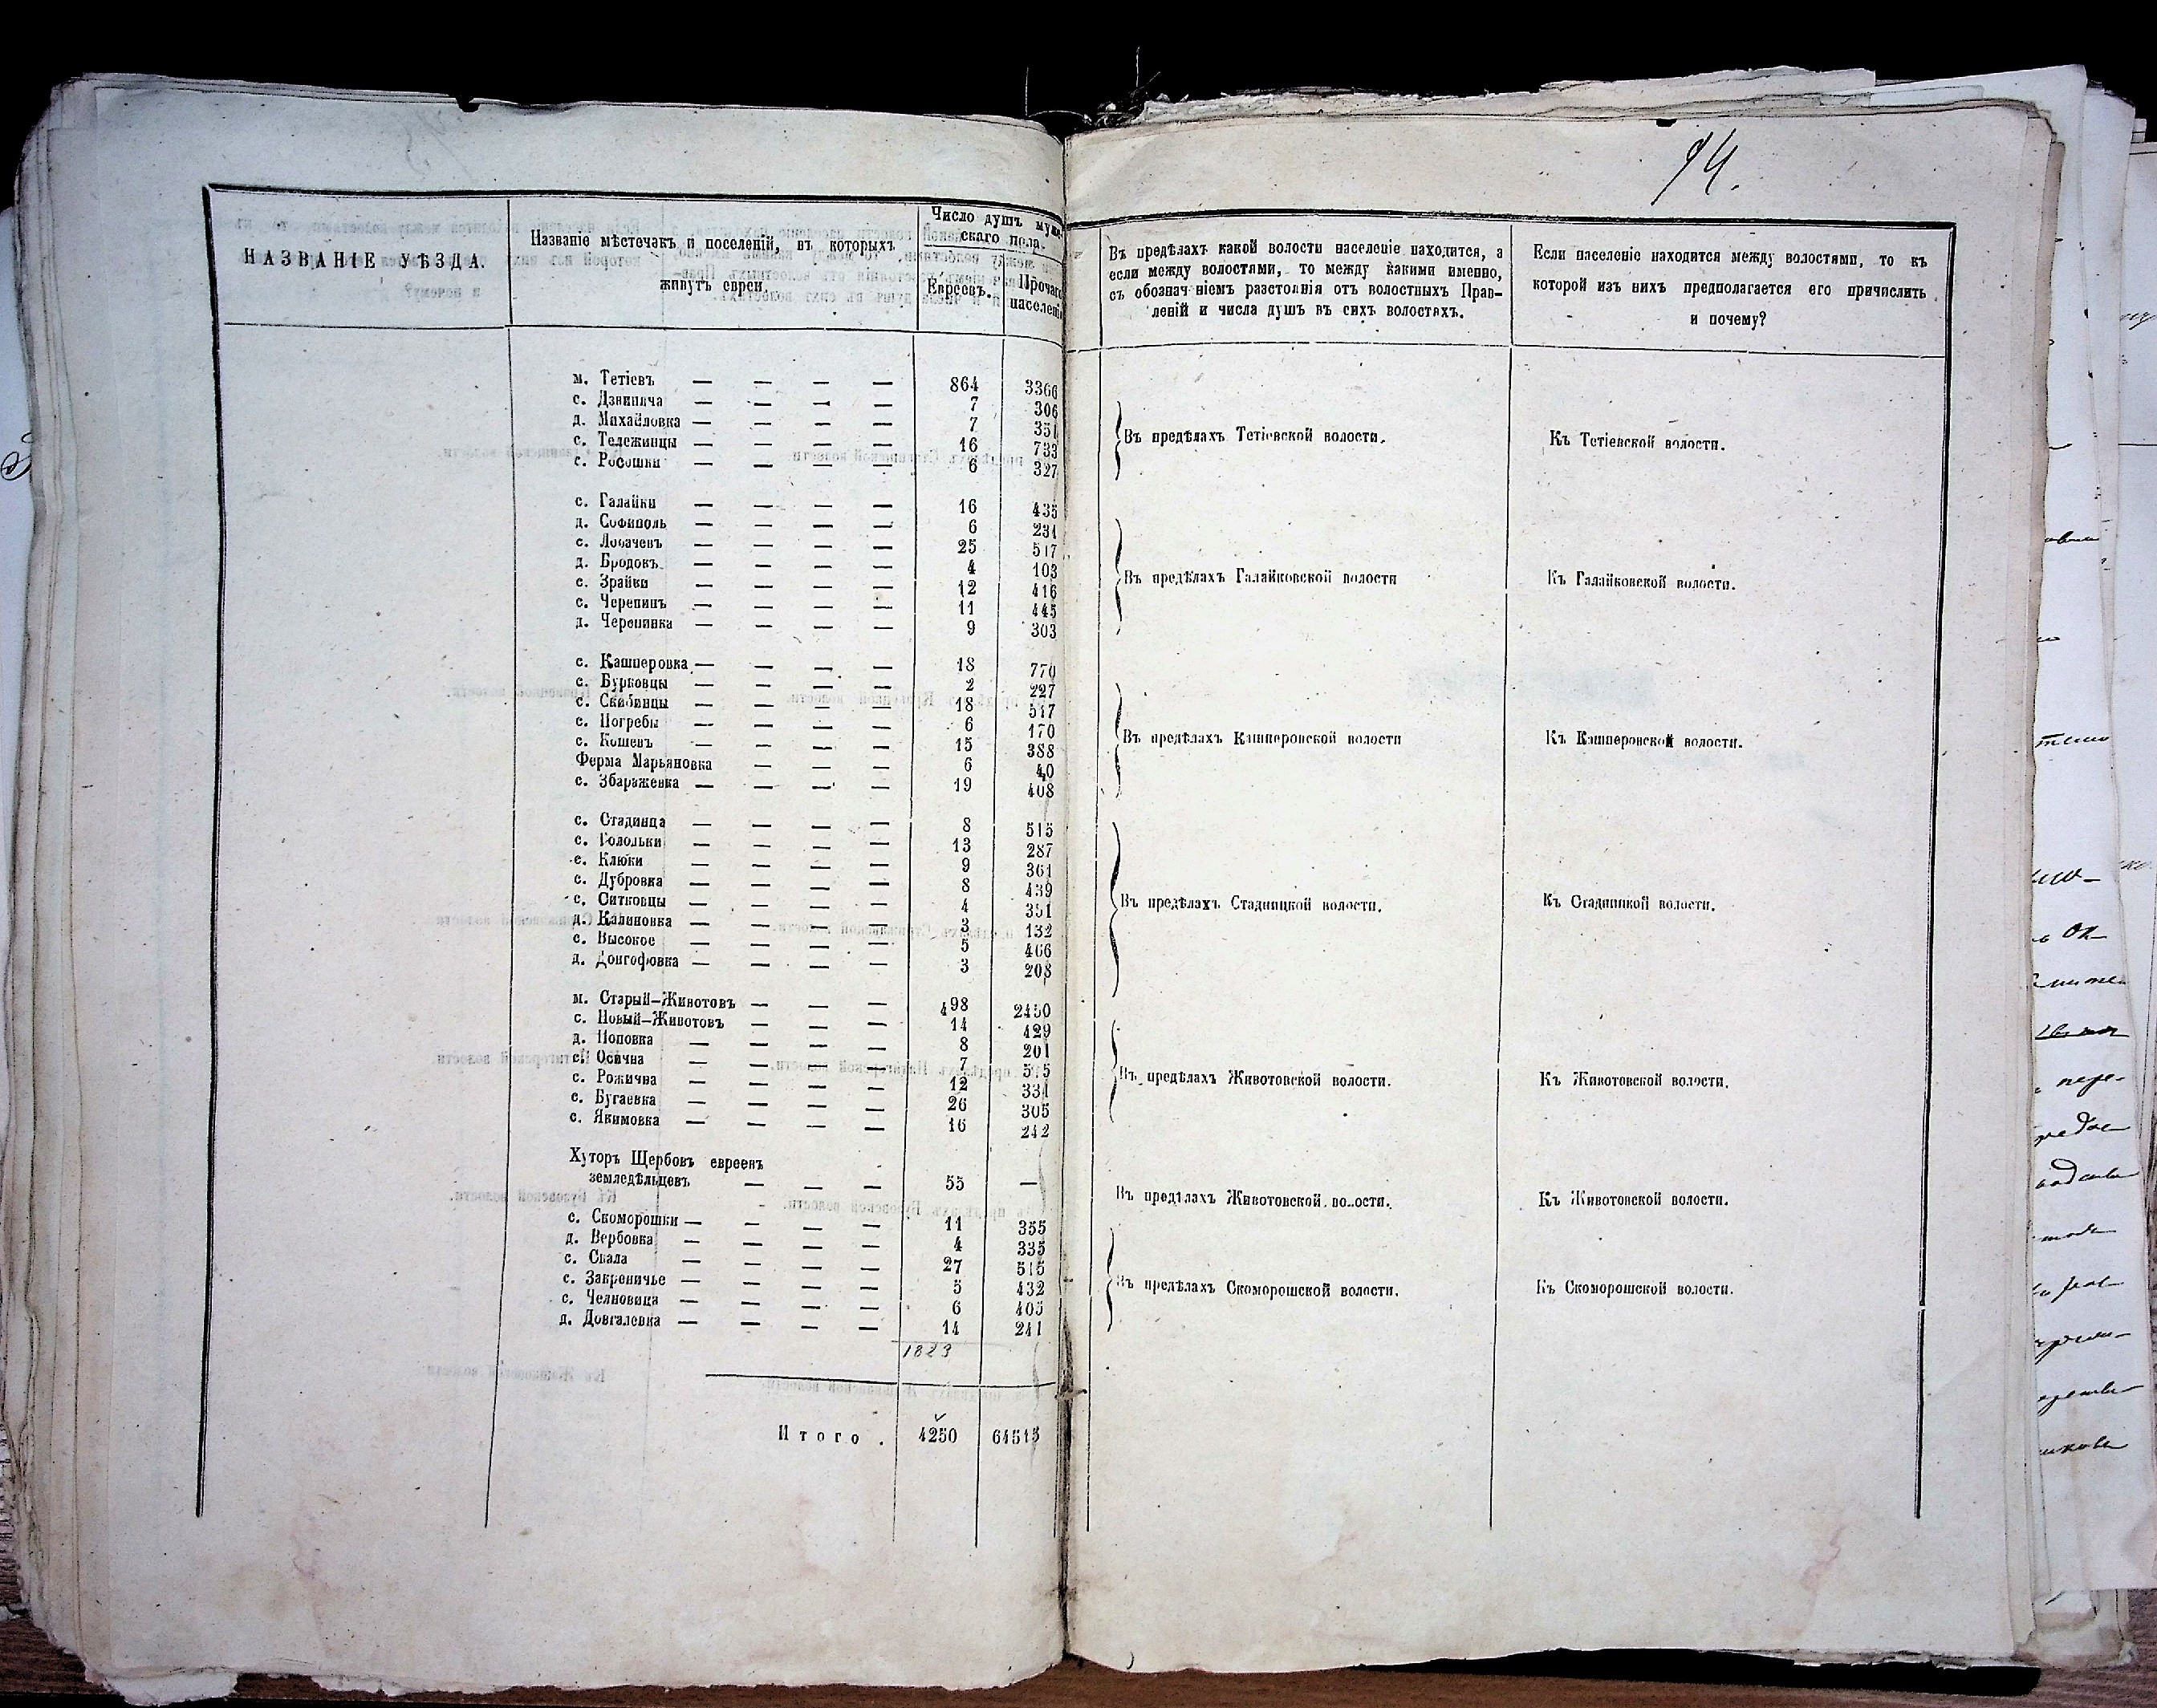 94.
НАЗВАНІЕ УѢЗДА.
Названіе мѣстечакъ и поселеній, въ которыхъ
живутъ евреи.
Число душъ муже-
скаго пола.
Евреевъ.
Прочаго
населенія
Въ предѣлахъ какой волости населеніе находится, а
если между волостями, то между какими именно,
съ обозначеніемъ разстоянія отъ волостныхъ Прав-
леній и числа душъ въ сихъ волостяхъ.
Если населеніе находится между волостями, то къ
которой изъ нихъ предполагается его причислить
и почему?
м. Тетіевъ — — — — 864 3366
с. Дзвиняча — — — — 7 306
д. Михайловка — — — — 7 351
с. Тележинцы — — — — 16 733
с. Росошки — — — — 6 327
Въ предѣлахъ Тетіевской волости.
Къ Тетіевской волости.
с. Галайки — — — — 16 435
д. Софиполь — — — — 6 231
с. Лобачевъ — — — — 25 517
д. Бродокъ — — — — 4 103
с. Зрайки — — — — 12 416
с. Черепинъ — — — — 11 445
д. Черепинка — — — — 9 303
Въ предѣлахъ Галайковской волости
Къ Галайковской волости.
с. Кашперовка — — — — 18 770
с. Бурковцы — — — — 2 227
с. Сквбинцы — — — — 18 517
с. Погребы — — — — 6 170
с. Кошевъ — — — — 15 388
Ферма Марьяновка — — — 6 40
с. Збаражевка — — — — 19 408
Въ предѣлахъ Кашперовской волости
Къ Кашперовской волости.
с. Стадница — — — — 8 515
с. Голодьки — — — — 13 287
с. Клюки — — — — 9 361
с. Дубровка — — — — 8 439
с. Ситковцы — — — — 4 351
д. Калиновка — — — — 3 132
с. Высокое — — — — 5 466
д. Донгофовка — — — — 3 208
Въ предѣлахъ Стадницкой волости.
Къ Стадницкой волости.
м. Старый-Животовъ — — — 498 2450
с. Новый-Животовъ — — — 14 429
д. Поповка — — — — 8 201
с. Осична — — — — 7 515
с. Рожична — — — — 12 331
с. Бугаевка — — — — 26 305
с. Якимовка — — — — 16 242
Въ предѣлахъ Животовской волости.
Къ Животовской волости.
Хуторъ Щербовъ евреевъ
земледѣльцевъ — — — 55 —
Въ предѣлахъ Животовской волости.
Къ Животовской волости.
с. Скоморошки — — — — 11 355
д. Вербовка — — — — 4 335
с. Скала — — — — 27 515
с. Закреничье — — — — 5 432
с. Челновица — — — — 6 405
д. Довгалевка — — — — 14 241
Въ предѣлахъ Скоморошской волости.
Къ Скоморошской волости.
1823
Итого. 4250 64515